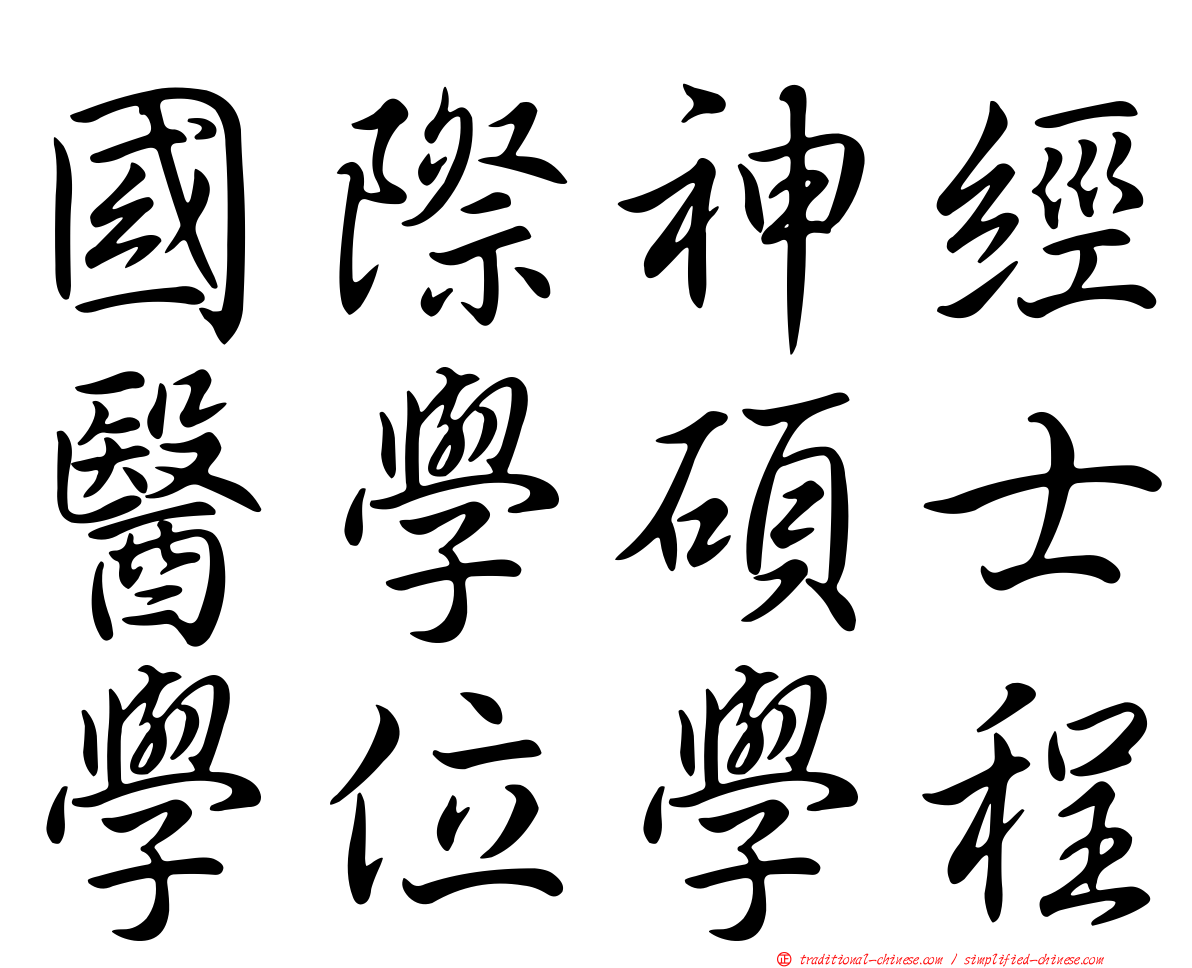 國際神經
醫學碩士
學位學程
正 traditional-chinese.com / simplified-chinese.com